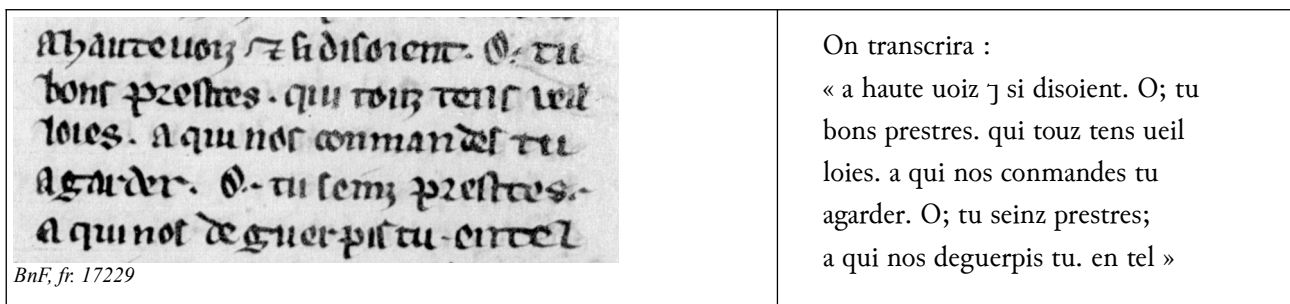 a haute uoiz ⁊ si disoient. O; tu
bons prestres. qui touz tens ueil
loies. a qui nos conmandes tu
agarder. O; tu seinz prestres;
a qui nos deguerpis tu. en tel
BnF, fr. 17229
On transcrira :
« a haute uoiz ⁊ si disoient. O; tu
bons prestres. qui touz tens ueil
loies. a qui nos conmandes tu
agarder. O; tu seinz prestres;
a qui nos deguerpis tu. en tel »